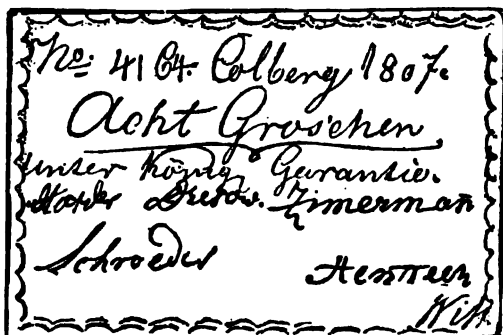 No: 4164. Colberg 1807.
Acht Groschen
unter König Garantie.
Dresow. Zimerman
Schroeder